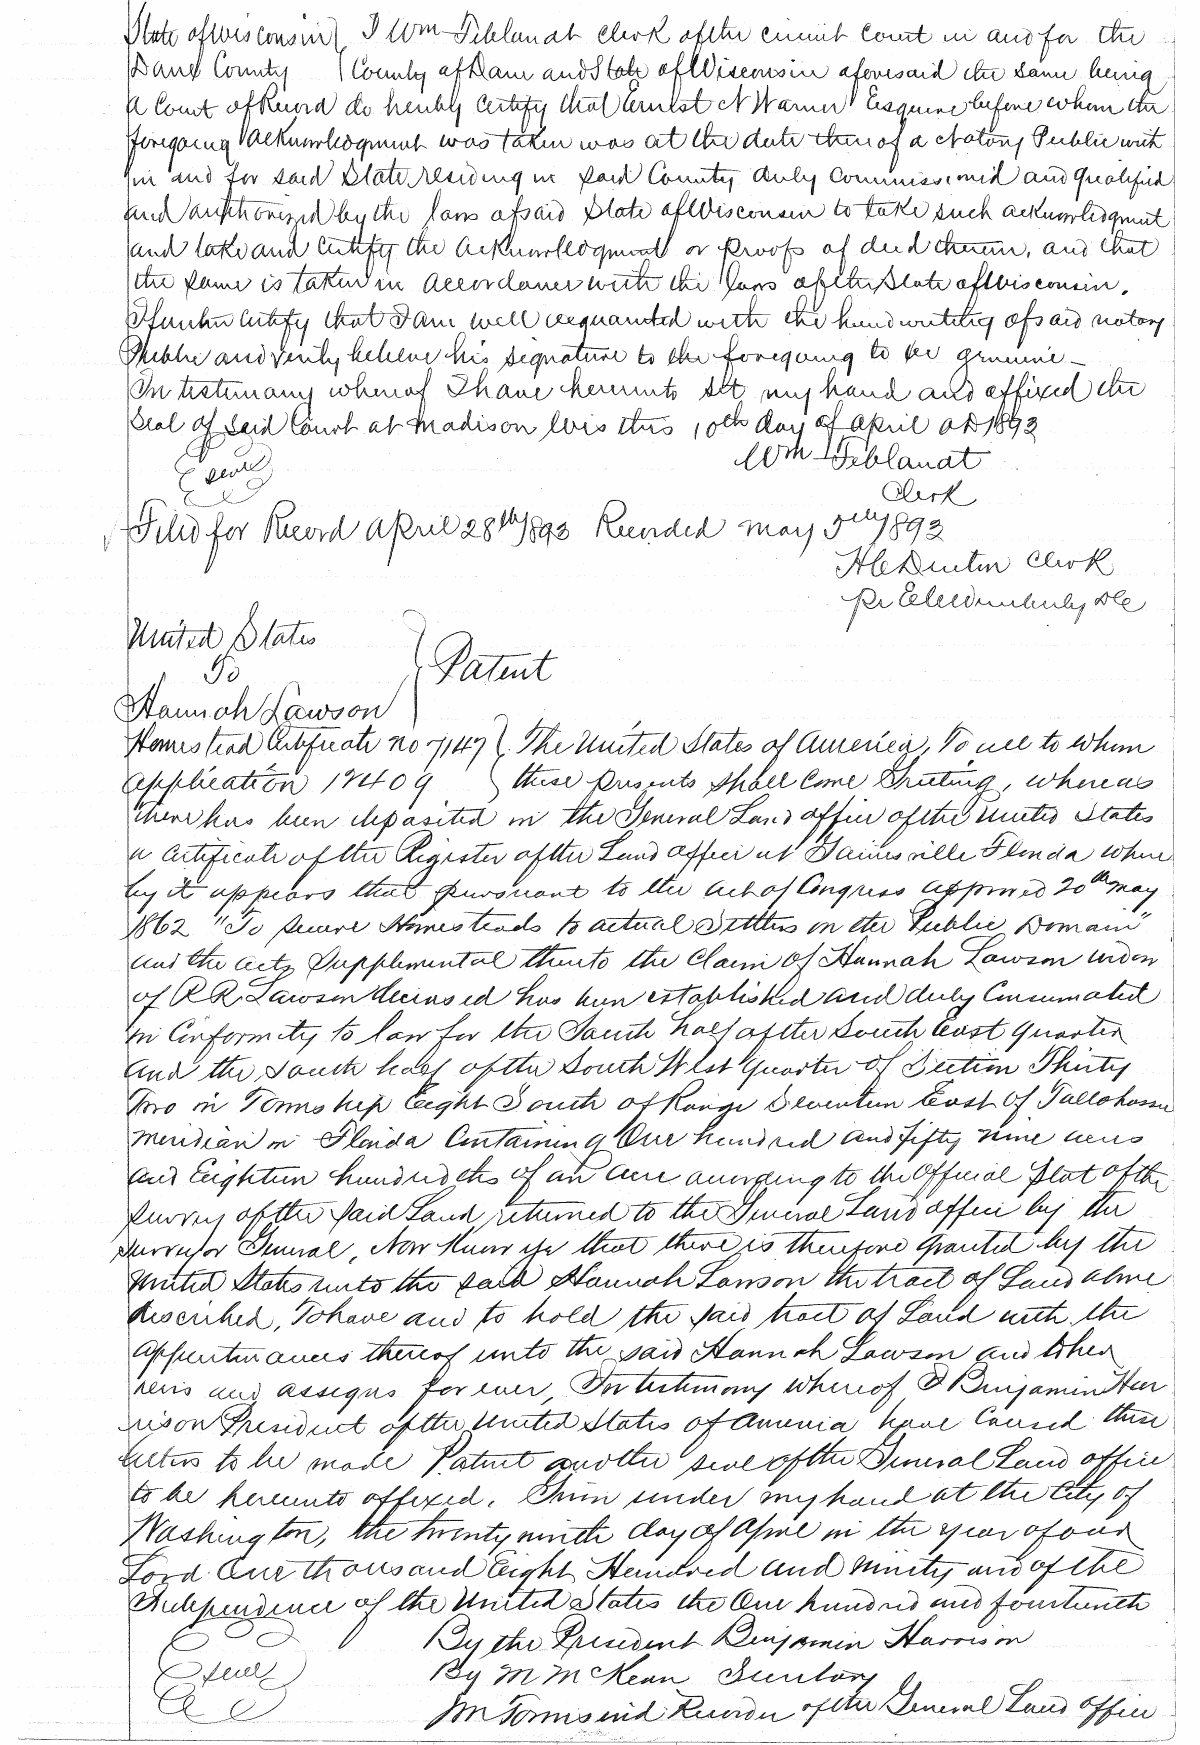 State of Wisconsin } I Wm Feblanat Clerk of the circuit Court in and for the
Dane County } County of Dane and State of Wisconsin aforesaid the same being
a Court of Record do hereby Certify that Ernest N Warner Esquire before whom the
foregoing acknowledgment was taken was at the date thereof a Notary Public with
in and for said State residing in said County duly commissioned and qualified
and authorized by the laws of said State of Wisconsin to take such acknowledgment
and take and Certify the acknowledgment or proofs of deed therein, and that
the same is taken in accordance with the laws of the State of Wisconsin.
I further Certify that I am well acquainted with the handwriting of said notary
Public and verily believe his signature to the foregoing to be genuine –
In testimony whereof I have hereunto set my hand and affixed the
Seal of said Court at Madison Wis this 10th day of April AD 1893
Seal Wm Feblanat
Clerk
Filed for Record April 28th 1893 Recorded May 5th 1893
H C Denton Clerk
pr DC
United States
To } Patent
Hannah Lawson
Homestead Certificate no 7147 } The United States of America, To all to whom
application 17409 } these presents shall come Greeting, whereas
there has been deposited in the General Land office of the United States
a Certificate of the Register of the Land office at Gainesville Florida where
by it appears that pursuant to the act of Congress approved 20th May
1862 "To secure Homesteads to actual Settlers on the Public Domain"
and the acts Supplemental thereto the Claim of Hannah Lawson widow
of R R. Lawson deceased has been established and duly Consumated
in Conformity to law for the South half of the South East quarter
and the south half of the South West quarter of Section Thirty
Two in Township Eight South of Range Seventeen East of Tallahassee
Meridian in Florida Containing One hundred and fifty nine acres
and Eighteen hundredths of an acre according to the Official Plat of the
Survey of the said Land returned to the General Land office by the
Surveyor General, Now know ye that there is therefore granted by the
United States unto the said Hannah Lawson the tract of Land above
described, To have and to hold the said tract of Land with the
appurtenances thereof unto the said Hannah Lawson and to her
heirs and assigns forever, In testimony whereof I Benjamin Har
rison President of the United States of America have Caused these
letters to be made Patent and the seal of the General Land office
to be hereunto affixed. Given under my hand at the City of
Washington, the twenty ninth day of April in the year of our
Lord One thousand Eight Hundred and Ninety and of the
Independence of the United States the One hundred and fourteenth
By the President Benjamin Harrison
Seal By M McKean Secretary
J M Townsend Recorder of the General Land office